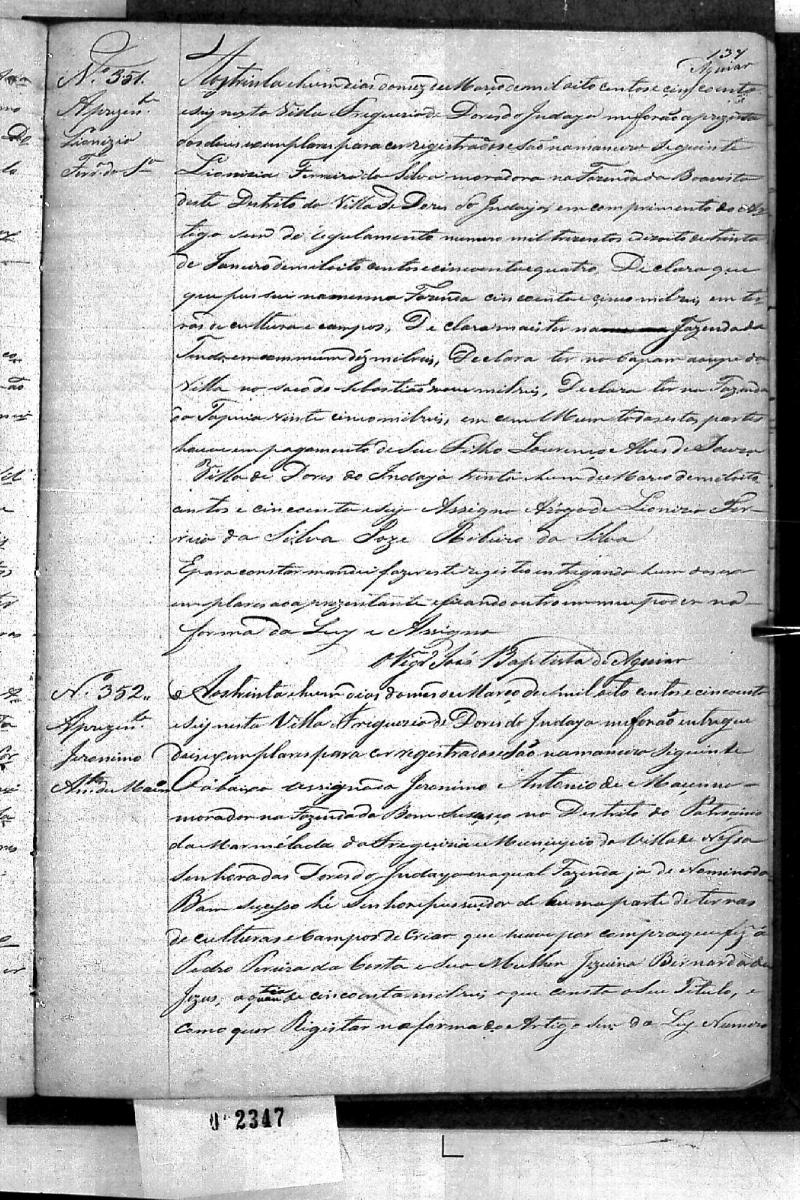 137
Aguiar
N.º 351.
Aprezen.te
Lionizia
Ferr.ª da S.ª
Aos trinta e hum dias do mez de Março de mil oito centos e cincoenta
e seis nesta Villa e Freguezia de Dores do Indaya me forão aprezenta
dos dous exemplares para ser registrados e são na maneira seguinte
Lionizia Ferreira da Silva moradora na Fazenda da Boavista
deste Destrito da Villa de Dores do Indaya, em comprimento do Ar-
tigo sem do regulamento numero mil trezentos e dizoito de trinta
de Janeiro de mil oito centos e cincoenta e quatro, Declara que
que possui na mesma Fazenda cincoenta e cinco mil reis, em ter
ras de cultura e campos, Declara mais ter na Fazenda do
em commum dez mil reis, Declara ter no Capam ao pe da
Villa no saco do Sebastião nove mil reis, Declara ter na Fazenda
da vinte cinco mil reis, em commum todas estas partes
houve em pagamento de seu Filho Lourenço Alves de Souza
Villa de Dores do Indaya trinta e hum de Março de mil oito
centos e cincoenta e seis Assigno Arogo de Lioniza Fer-
reira da Silva Joze Ribeiro da Silva
E para constar mandei fazer este registo entregando hum dos ex
emplares ao aprezentante e ficando outro em meu poder na
forma da Ley e Assigno
O Vigr.º João Baptista de Aguiar
N.º 352.
Aprezen.te
Jeronimo
Ant.º de
Aos trinta e hum dias do mês de Março de mil oito centos e cincoenta
e seis nesta Villa e Freguezia de Dores do Indaya me forão entregue
dois exemplares para ser registrados e são na maneira seguinte
O abaixo assignado Jeronimo Antonio de
morador na Fazenda da Bom Sucesso no Destrito do Patrocinio
da Marmélada da Freguizia e Municipio da Villa de Nossa
Senhora das Dores do Indaya en a qual Fazenda ja de Nominada
Bom Sucesso hé Senhor e possuidor de huma parte de terras
de culturas e Campos de Criar que houve por compra que fez á
Pedro Pereira da Costa e Sua Mulher Jezuina Bernarda de
Jezus, a quantia de cincoenta mil reis, o que consta o Seu Titulo, e
como quer Registar na forma do Artigo Sem da Ley Numero
Nº 2347